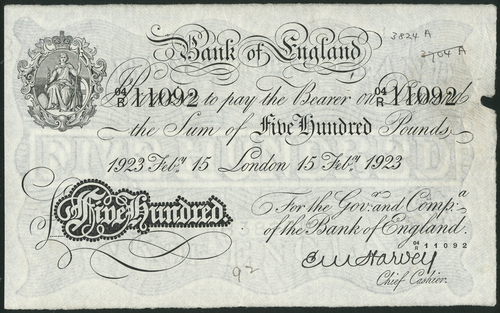 3824 A
Bank of England
2704 A
04/R 11092 04/R 11092
I Promise to pay the Bearer on Demand
the Sum of Five Hundred Pounds
1923 Feby. 15 London 15 Feby. 1923
Five Hundred
For the Govr. and Compa.
of the Bank of England.
04/R 11092
E M Harvey
Chief Cashier.
92